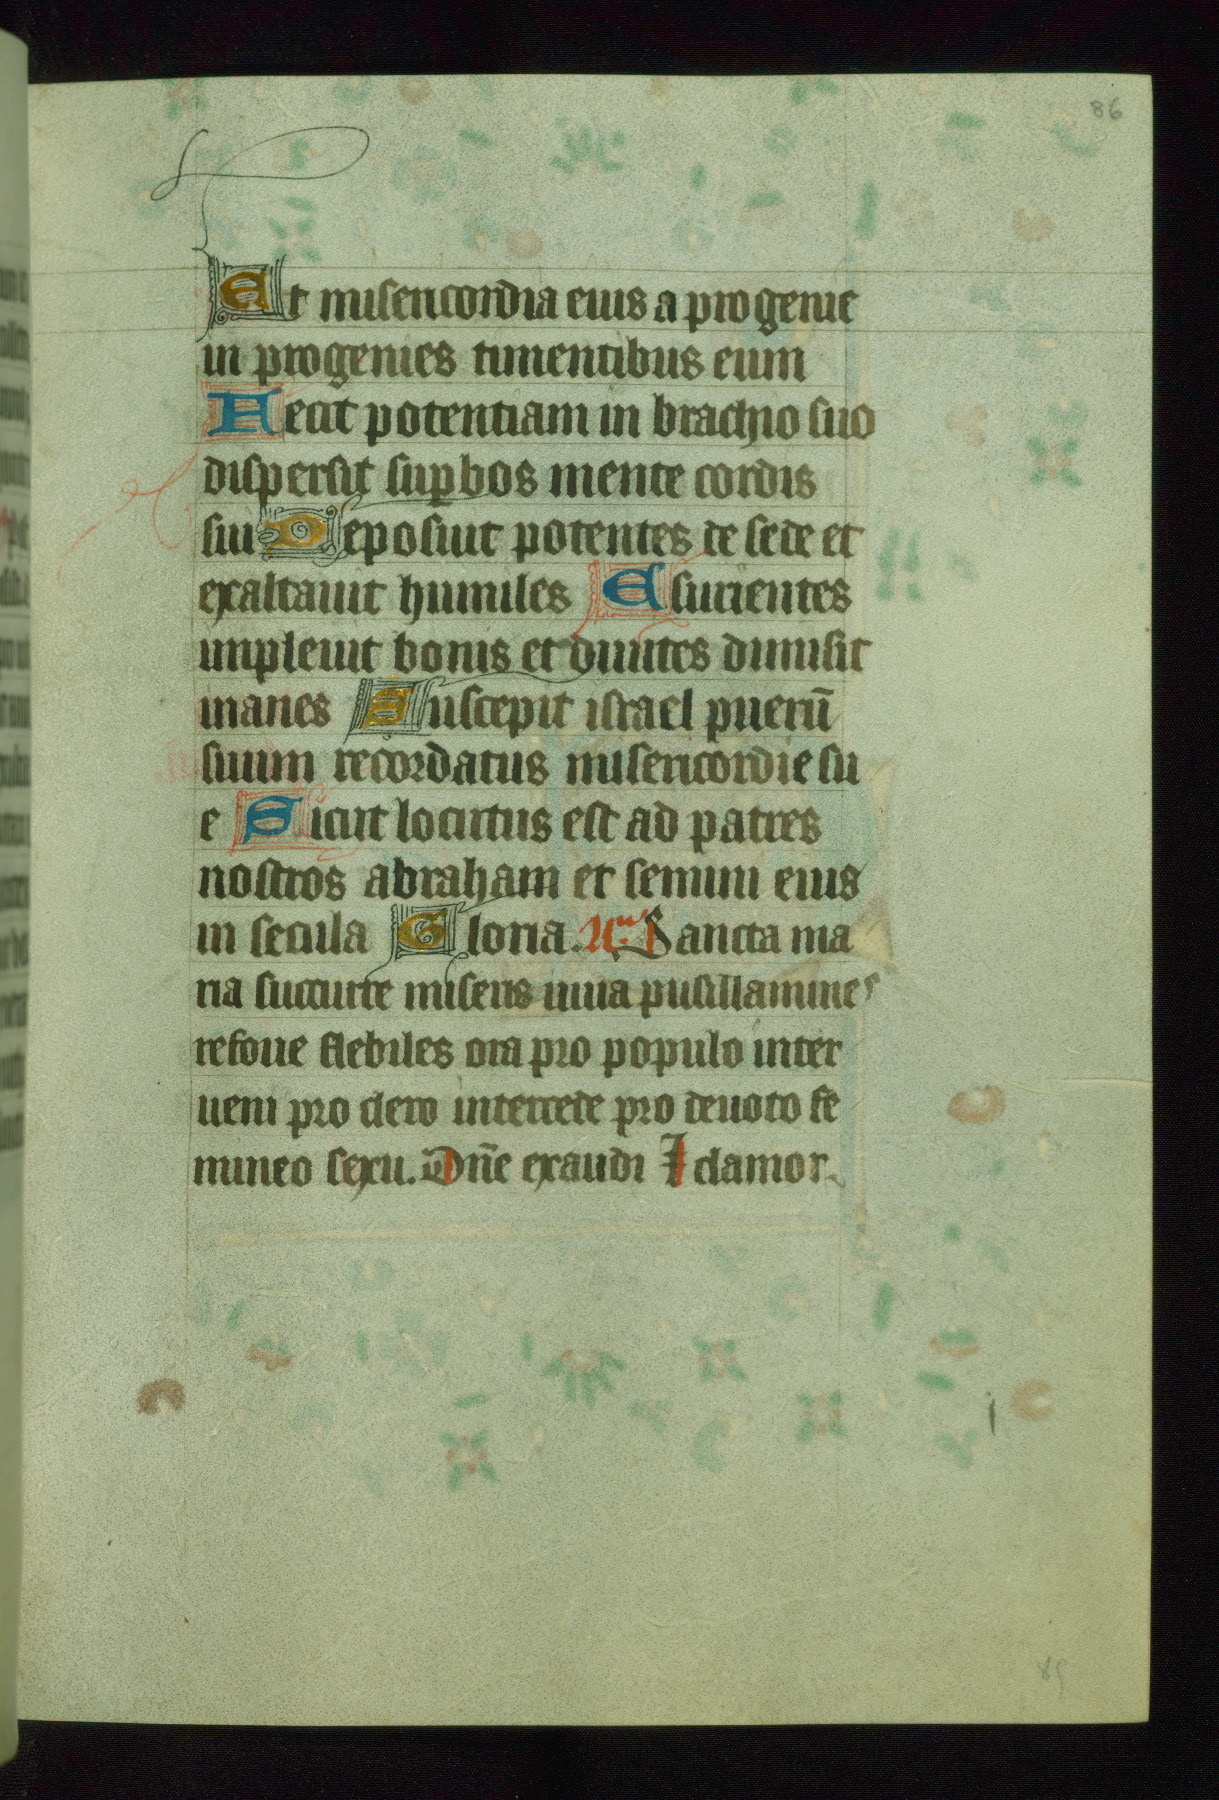 86
Et misericordia eius a progenie
in progenies timentibus eum
Fecit potentiam in brachio suo
dispersit suꝑbos mente cordis
sui Deposuit potentes de sede et
exaltauit humiles Esurientes
impleuit bonis et diuites dimisit
inanes Suscepit israel puerū
suum recordatus misericordie su
e Sicut locutus est ad patres
nostros abraham et semini eius
in secula Gloria. Sancta ma
ria succurre miseris iuua pusillanimes
refoue flebiles ora pro populo inter
ueni pro clero intercede pro deuoto fe
mineo sexu. Dn̄e exaudi I clamor.
85